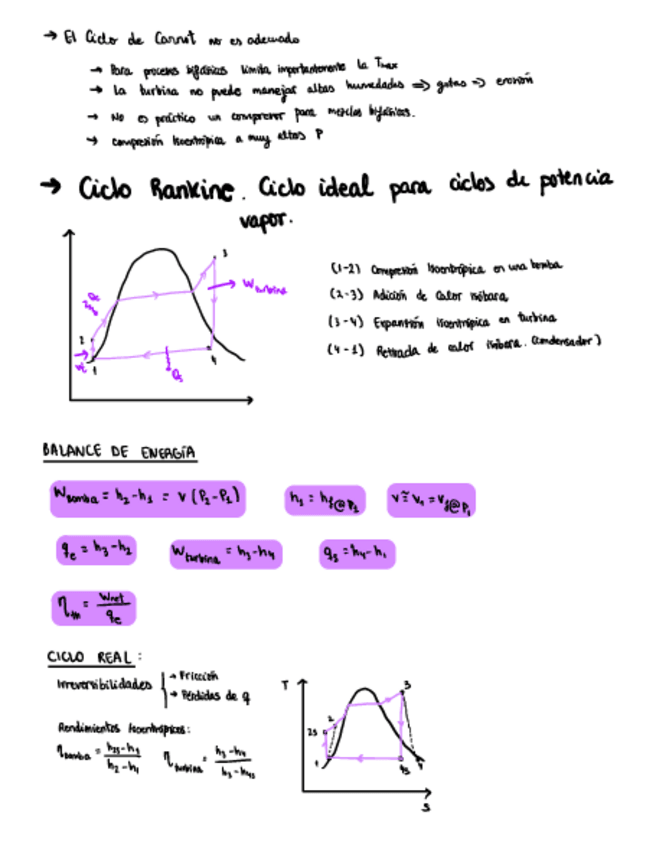 → El Ciclo de Carnot no es adecuado
→ Para procesos bifásicos limita importantemente la Tmax
→ La turbina no puede manejar altas humedades => gotas => erosión
→ No es práctico un compresor para mezclas bifásicas.
→ compresión isoentrópica a muy altos P
→ Ciclo Rankine. Ciclo ideal para ciclos de potencia
vapor.
(1-2) Compresión isoentrópica en una bomba
(2-3) Adición de calor isóbara
(3-4) Expansión isoentrópica en turbina
(4-1) Retirada de calor isóbara. (condensador)
3
W turbina
Qe
2
1
4
Qs
BALANCE DE ENERGÍA
W bomba = h2-h1 = v (P2-P1)
h1 = hf@P1
v ≅ v1 = vf@P1
qe = h3-h2
W turbina = h3-h4
qs = h4-h1
ηth = wnet/qe
CICLO REAL :
Irreversibilidades
→ Fricción
→ Pérdidas de q
Rendimientos isoentrópicos:
η bomba = h2s-h1/h2-h1
η turbina = h3-h4/h3-h4s
T
3
2
2s
1
4s
4
S